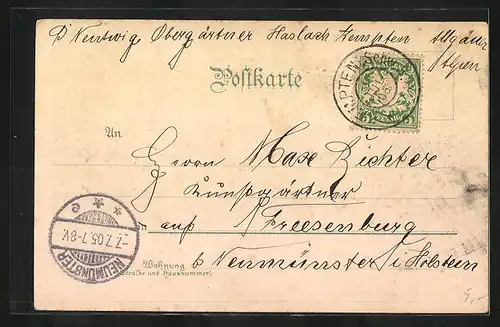 P Nentwig Obergärtner Haslach Kempten Allgäuer
Alpen
Postkarte
An
Herrn Max Richter
Kunstgärtner
auf Freesenburg
Wohnung
(Straße und Hausnummer)
b Neumünster i Holstein
NEUMÜNSTER
-7.7.05.7-8V.
* * e
KEMPTEN
5,-